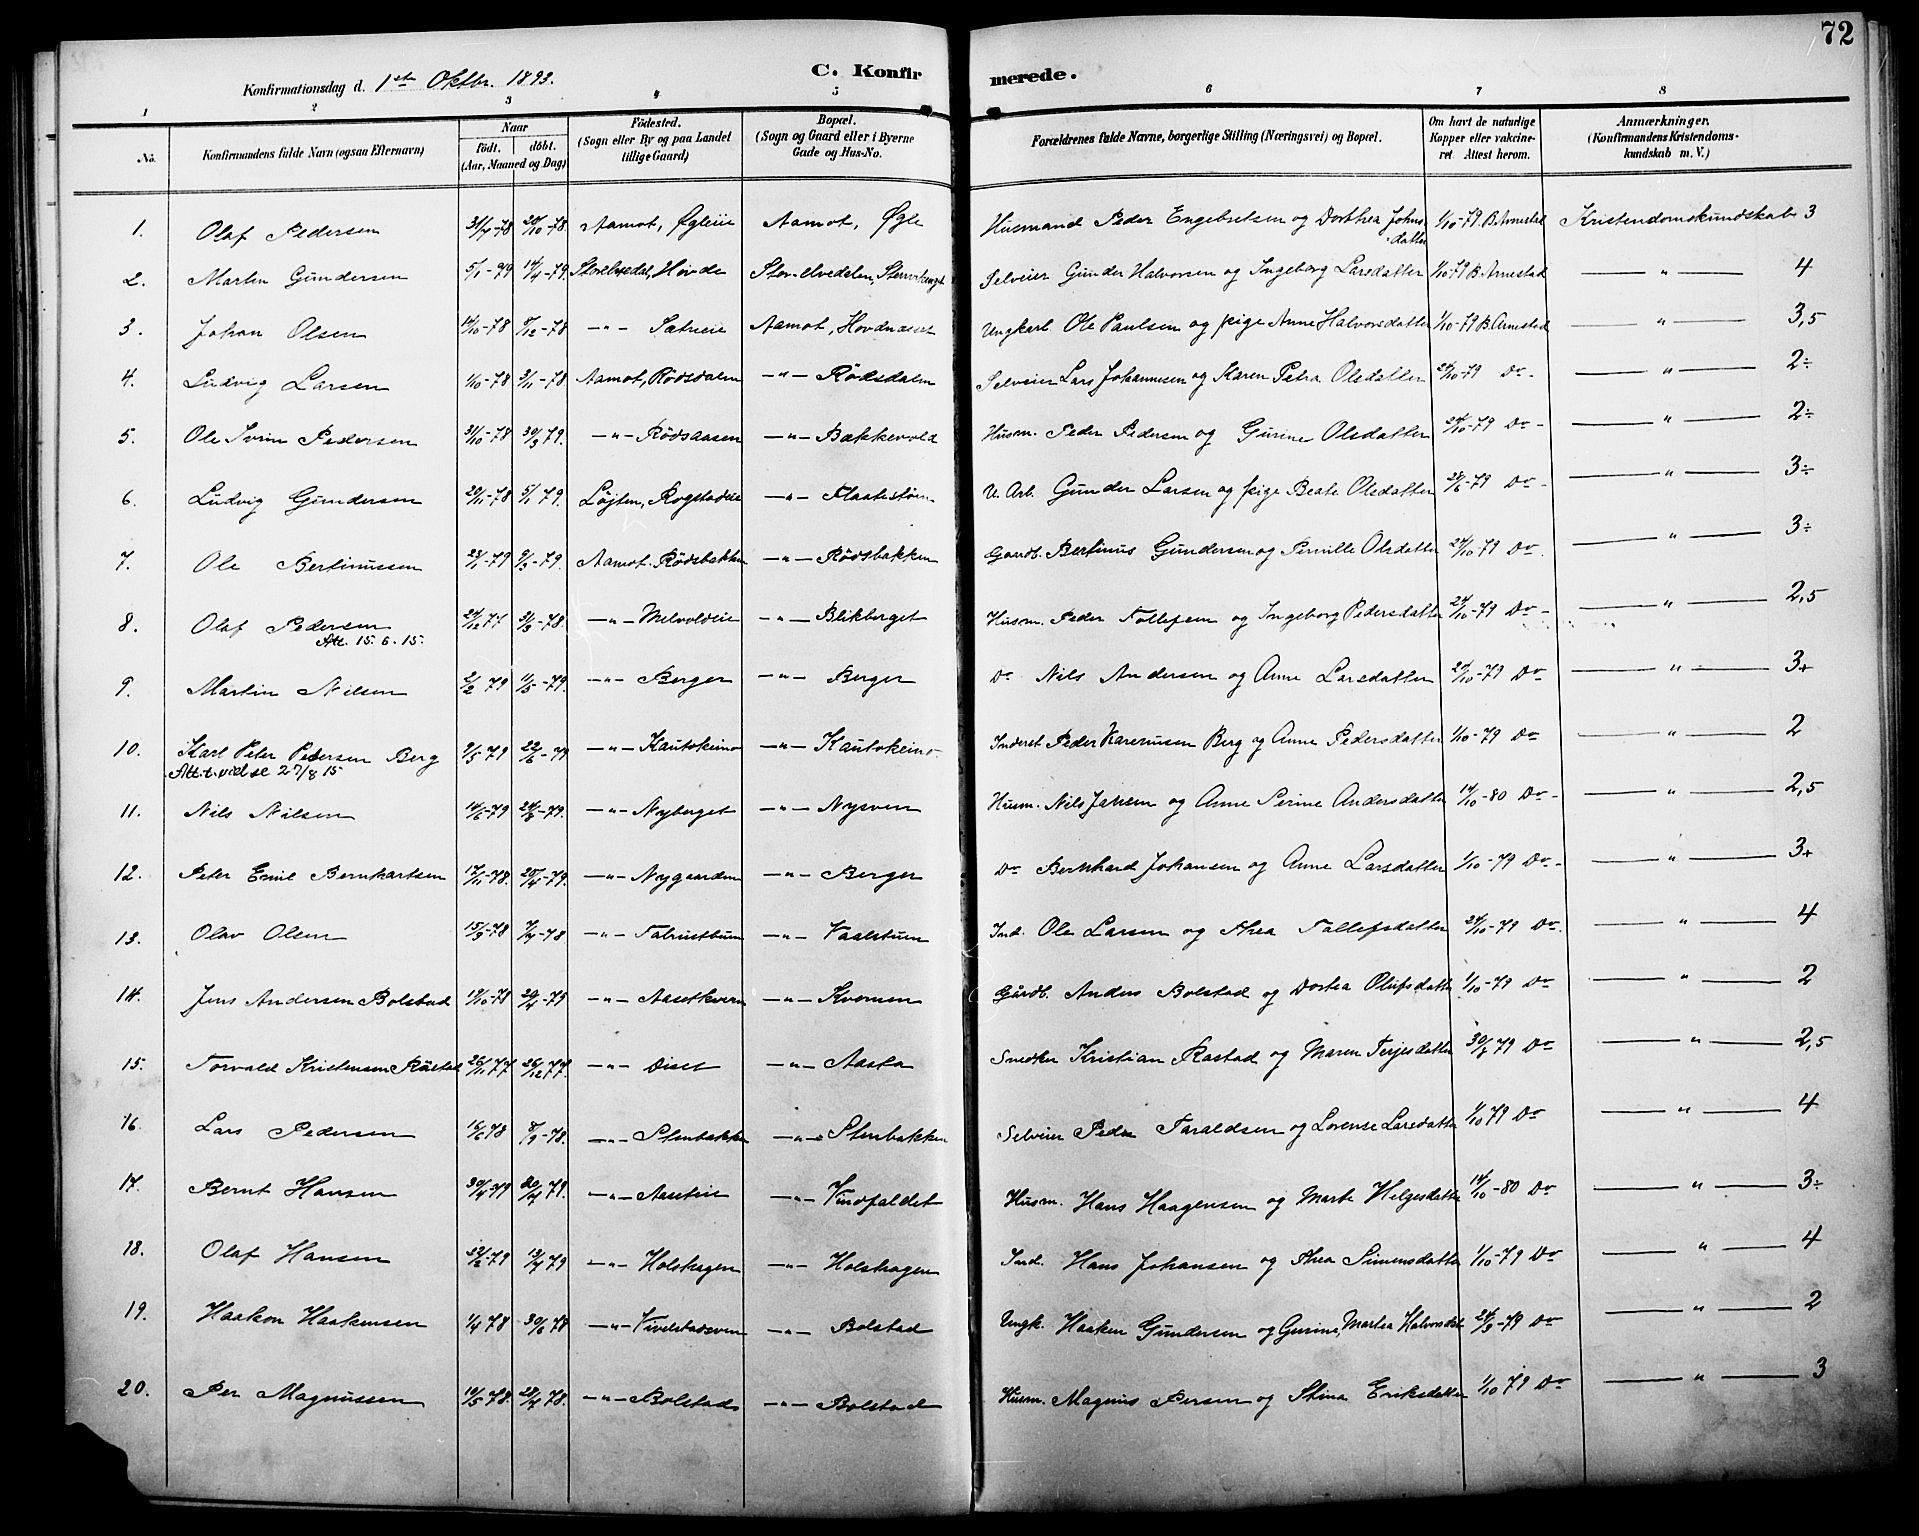 72
Konfirmationsdag d. 1ste Oktbr. 1893. C. Konfirmerede.
1 2 3 4 5 6 7 8
No. Konfirmandens fulde Navn (ogsaa Efternavn) Naar födt. döbt. (Aar, Maaned og Dag) Födested. (Sogn eller By og paa Landet tillige Gaard) Bopæl. (Sogn og Gaard eller i Byerne Gade og Hus-No. Forældrenes fulde Navne, borgerlige Stilling (Næringsvei) og Bopæl. Om havt de naturlige Kopper eller vakcineret Attest herom. Anmærkninger. (Konfirmandens Kristendomskundskab m. V.)
1. Olaf Pedersen 31/7-78 20/10-78 Aamot, Ögleie Aamot, Øgle Husmand Peder Engebretsen og Dorthea Johnsdatter 1/10-79 B. Arnestad Kristendomskundskab 3
2. Martin Gundersen 5/1-79 14/4-79 Hovde Stor-elvedalen, Selveier Gunder Halvorsen og Ingeborg Larsdatter 1/10-79 B. Arnestad — " — 4
3. Johan Olsen 14/10-78 8/12-78 — " — Sætreie Aamot, Hovdnæset Ungkarl Ole Paulsen og pige Anne Halvorsdatter 1/10-79 B. Arnestad — " — 3,5
4. Ludvig Larsen 1/10-78 3/11-78 Aamot, Rödsdalen — " — Rödsdalen Selveier Lars Johannesen og Karen Petra Olsdatter 24/10-79 Do — " — 2÷
5. Ole Pedersen 31/10-78 30/3 79. — " — Rödsaasen — " — Bækkevold Husm. Peder Pedersen og Gurine Olsdatter 24/10-79 Do — " — 2÷
6. Ludvig Gundersen 20/11-78 5/1 79. Løjten, Rogstadeie — " — U. Arb. Gunder Larsen og pige Beate Olsdatter 28/6-79 Do — " — 3÷
7. Ole Bertinussen 23/1-79 9/3-79. Aamot. Rödsbakken — " — Rödsbakken Gardb. Bertinus Gundersen og Pernille Olsdatter 24/10-79 Do — " — 3÷
8. Olaf Pedersen 24/12 77 3/3-78. — " — Melvoldeie — " — Blikberget Husm. Peder Tollefsen og Ingeborg Pedersdatter 24/10-79 Do — " — 2,5
Att. 15.6.15.
9. Martin Nilsen 2/2 79 11/5-79. — " — Berger — " — Berger Do Nils Andersen og Anne Larsdatter 24/10-79 Do — " — 3+
10. Karl Peter Pedersen Berg 9/5 79 22/6-79 — " — Kautokeino — " — Kautokeino Inderst Peder Karenusen Berg og Anne Pedersdatter 1/10-79 Do — " — 2
Att. t. vielse 27/8 15
11. Nils Nilsen 14/6-79 24/8-79. — " — Nyberget — " — Nysven Husm. Nils Jansen og Anne Perine Andersdatter 14/10-80 Do — " — 2,5
12. Peter Emil Bernhartsen 17/11-78. 20/4-79. — " — Nygaarden — " — Berger Do Bernhard Johansen og Anne Larsdatter 1/10-79 Do — " — 3+
13. Olav Olsen 15/3-78 7/4-78 — " — — " — Vaalstuen Ind. Ole Larsen og Thea Tollefsdatter 24/10-79 Do — " — 4
14. Jens Andersen Bolstad 19/10-78 20/4-79 — " — Aasetkvern — " — Kvernen Gårdb. Anders Bolstad og Dortea Olufsdatter 1/10-79 Do — " — 2
15. Torvald Kristensen Råstad 26/11 77 26/12 77. — " — Diset — " — Aasta Snedker Kristian Rastad og Maren Terjesdatter 30/7 79 Do — " — 2,5
16. Lars Pedersen 16/6 78 8/9-78. — " — Stenbakken — " — Stenbakken Selveier Peder Taraldsen og Lorense Larsdatter 1/10 79 Do — " — 4
17. Bernt Hansen 30/4-79 20/4 79. — " — Aaseteie — " — Vindfaldet Husm. Hans Haagensen og Marte Helgesdatter 14/10-80 Do — " — 3÷
18. Olaf Hansen 23/2-79 13/4 79 — " — Holshagen — " — Holshagen Ind. Hans Johansen og Thea Simensdatter 1/10-79 Do — " — 4
19. Haakon Haakensen 1/4 78 30/6 78 — " — — " — Bolstad Ungk. Haaken Gundersen og Gurine Martea Halvorsdat. 24/9-79 Do — " — 2
20. Per Magnussen 10/5 78. 28/7 78. — " — Bolstad — " — Bolstad Husm. Magnus Persen og Stina Eriksdatter 1/10 79 Do — " — 3